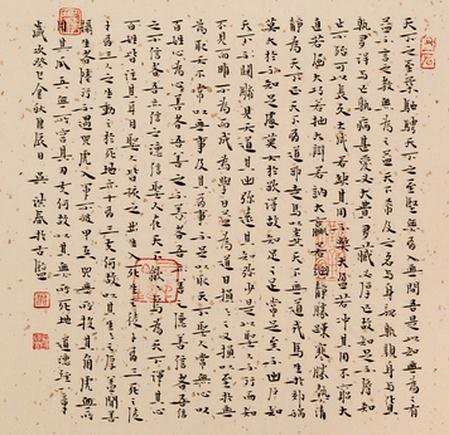 天下之至柔馳騁天下之至堅無有入無間吾是以知無為之有
益不言之教無為之益天下希及之名與身孰親身與貨
孰多得與亡孰病甚愛必大費多藏必厚亡故知足不辱知
止不殆可以長久大成若缺其用不弊大盈若沖其用不窮大
直若屈大巧若拙大辯若訥大贏若絀靜勝躁寒勝熱清
靜為天下正天下有道卻走馬以糞天下無道戎馬生於郊禍
莫大於不知足咎莫大於欲得故知足之足常足矣不出戶知
天下不闚牖見天道其出彌遠其知彌少是以聖人不行而知
不見而明不為而成為學日益為道日損損之又損以至於無
為取天下常以無事及其有事不足以取天下聖人常無心以
百姓心為心善者吾善之不善者吾亦善之德善信者吾信
之不信者吾亦信之德信聖人在天下歙歙焉為天下渾其心
百姓皆注其耳目聖人皆孩之出生入死生之徒十有三死之徒
十有三人之生動之於死地亦十有三夫何故以其生生之厚蓋聞善
攝生者陸行不遇兕虎入軍不被甲兵兕無所投其角虎無所
用其爪兵無所容其刃夫何故以其無死地 道德經八章
歲次癸巳金秋月辰日 吳洪春於古